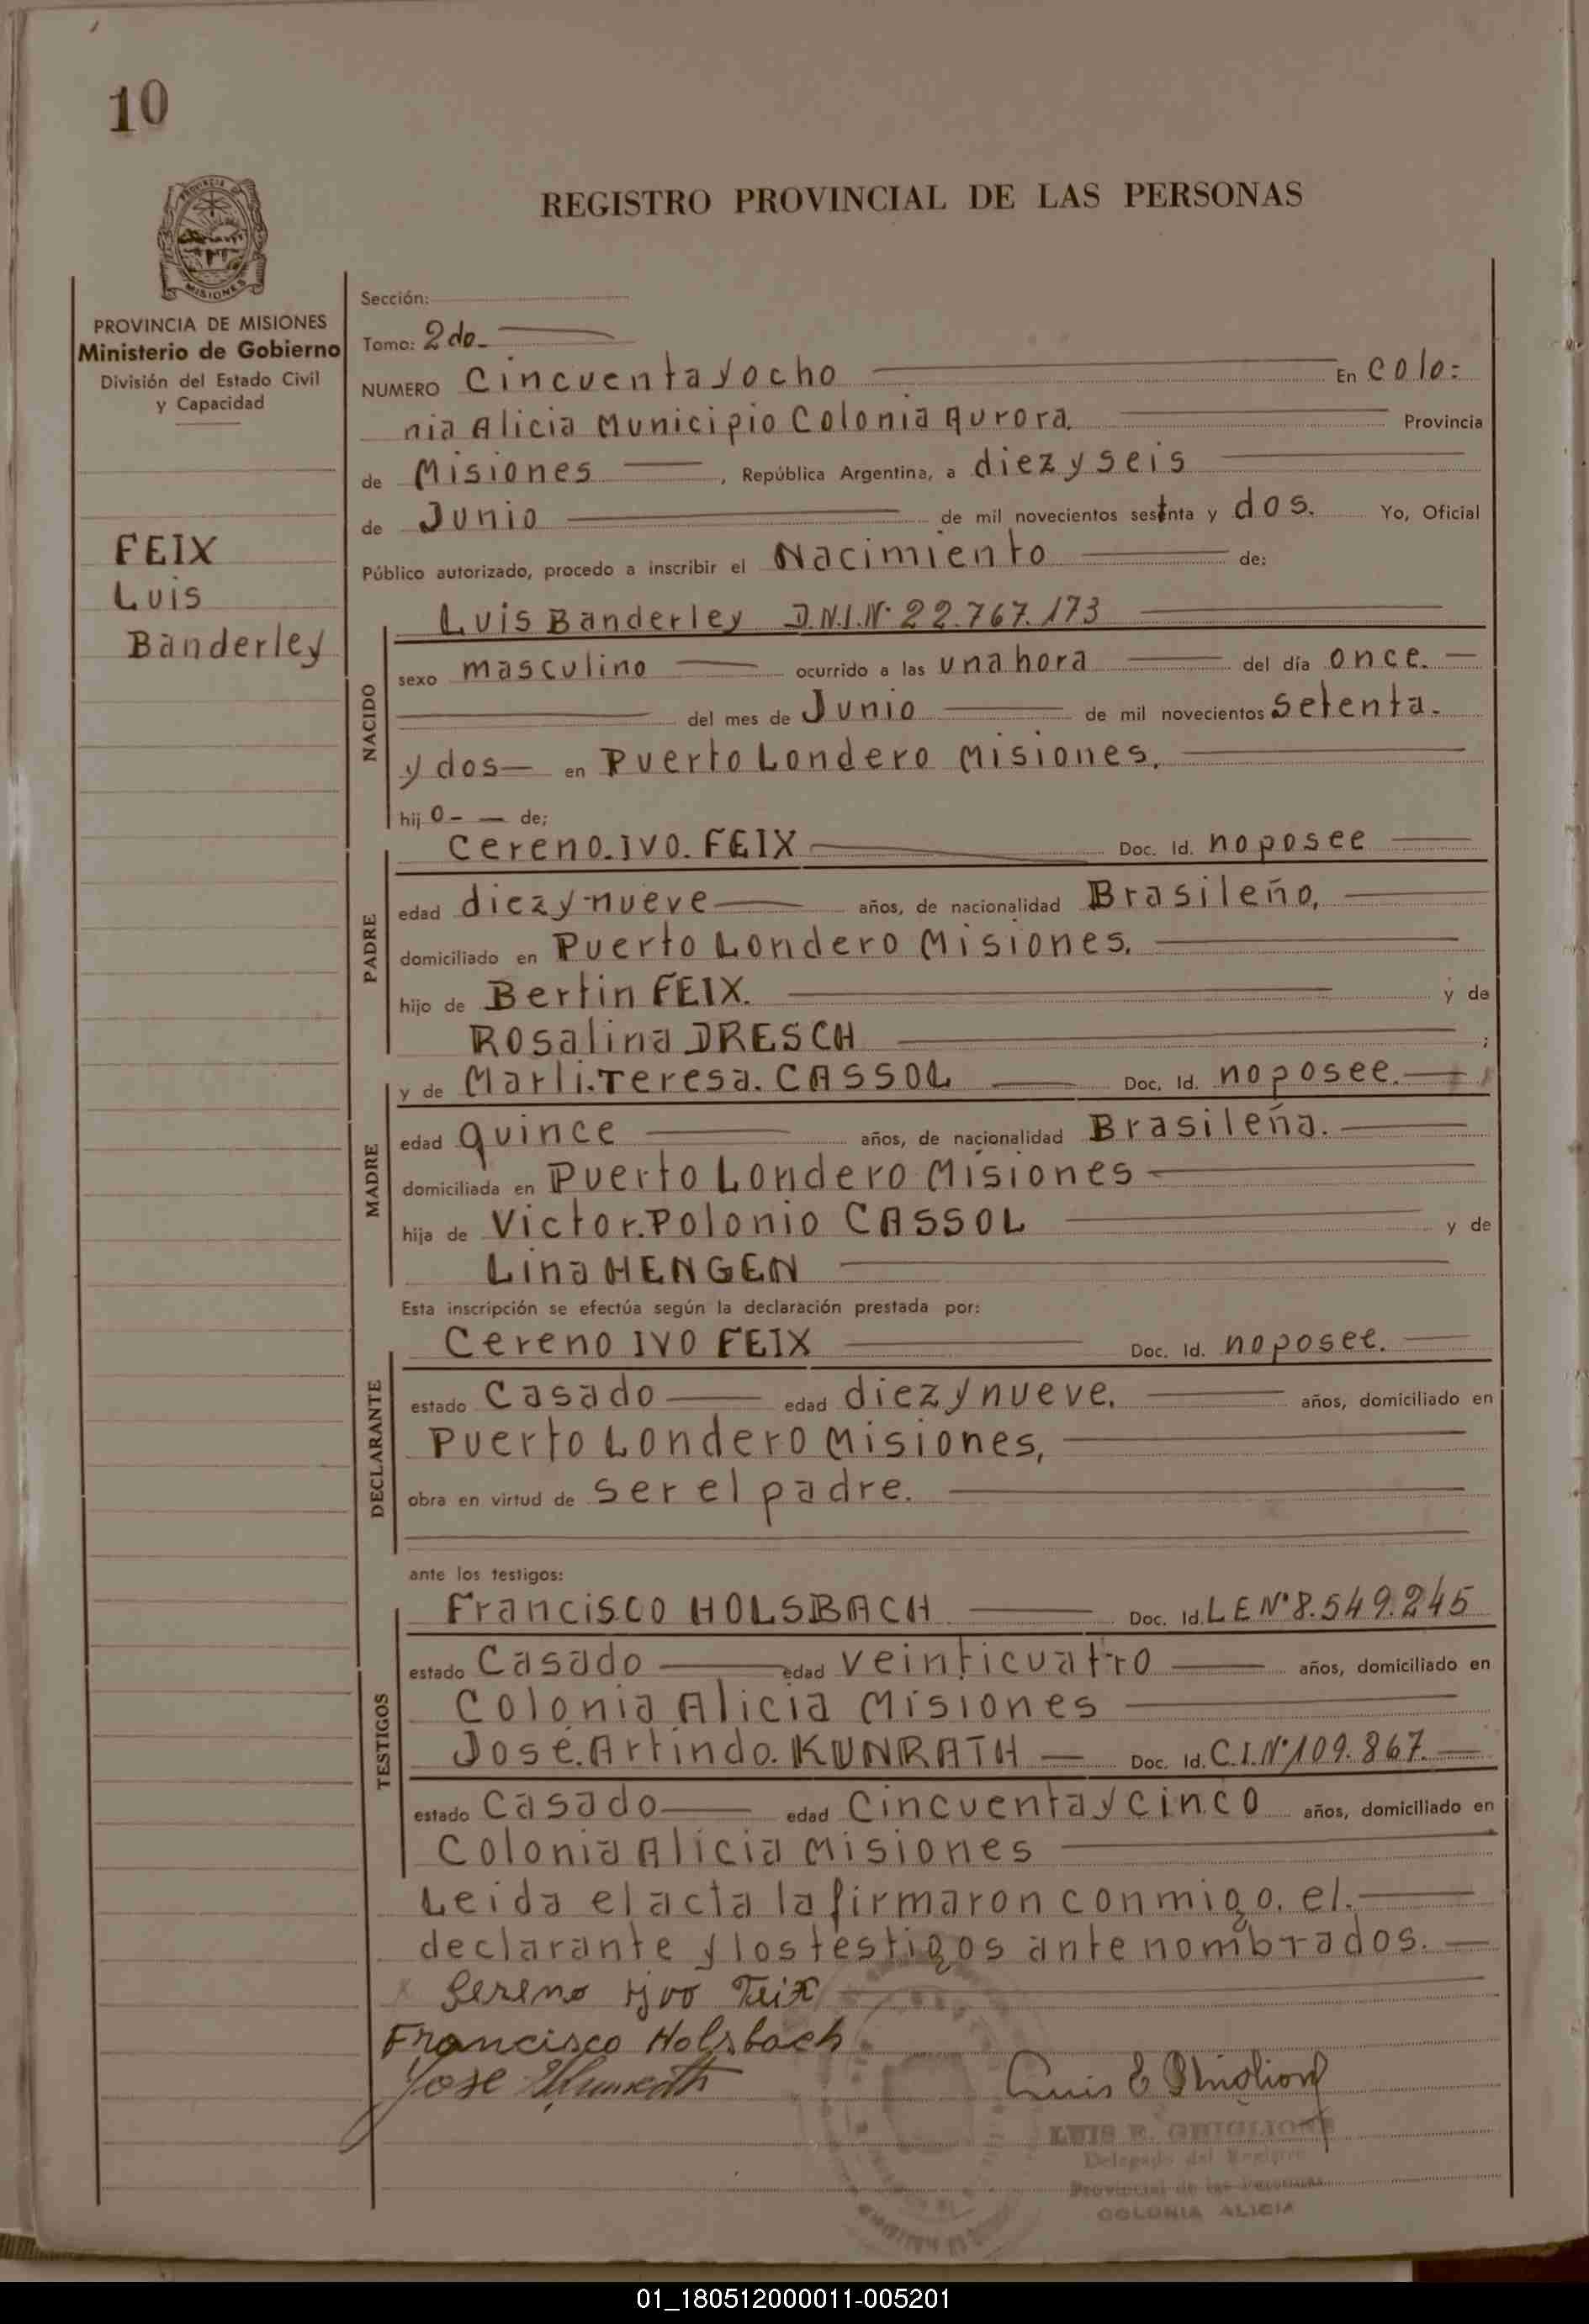 10
REGISTRO PROVINCIAL DE LAS PERSONAS
MISIONES
PROVINCIA DE MISIONES
Ministerio de Gobierno
División del Estado Civil
y Capacidad
FEIX
Luis
Banderley
Sección:
Tomo: 2do.
NUMERO Cincuenta y ocho En Colo=
nia Alicia Municipio Colonia Aurora. Provincia
de Misiones, República Argentina, a diez y seis
de Junio de mil novecientos setenta y dos. Yo, Oficial
Público autorizado, procedo a inscribir el Nacimiento de:
Luis Banderley D.N.I.Nº 22.767.173
NACIDO
sexo masculino ocurrido a las una hora del día once.
del mes de Junio de mil novecientos setenta.
y dos en Puerto Londero Misiones.
hijo de;
PADRE
Cereno. Ivo. FEIX Doc. Id. no posee
edad diez y nueve años, de nacionalidad Brasileño,
domiciliado en Puerto Londero Misiones.
hijo de Bertin FEIX. y de
Rosalina DRESCH ;
MADRE
y de Marli. Teresa. CASSOL Doc. Id. no posee.
edad quince años, de nacionalidad Brasileña.
domiciliada en Puerto Londero Misiones
hija de Victor. Polonio CASSOL y de
Lina HENGEN
Esta inscripción se efectúa según la declaración prestada por:
DECLARANTE
Cereno IVO FEIX Doc. Id. no posee.
estado Casado edad diez y nueve. años, domiciliado en
Puerto Londero Misiones,
obra en virtud de ser el padre.
ante los testigos:
TESTIGOS
Francisco HOLSBACH Doc. Id. L E Nº 8.549.245
estado Casado edad veinticuatro años, domiciliado en
Colonia Alicia Misiones
José. Artindo. KUNRATH Doc. Id. C.I.Nº 109.867.
estado Casado edad Cincuenta y cinco años, domiciliado en
Colonia Alicia Misiones
Leida el acta la firmaron conmigo. el.
declarante y los testigos ante nombrados.
Sereno Ijvo Feix
Francisco Holsbach
Jose
Luis E
LUIS E.
Delegado del Registro
Provincial de las Personas
COLONIA ALICIA
01_180512000011-005201